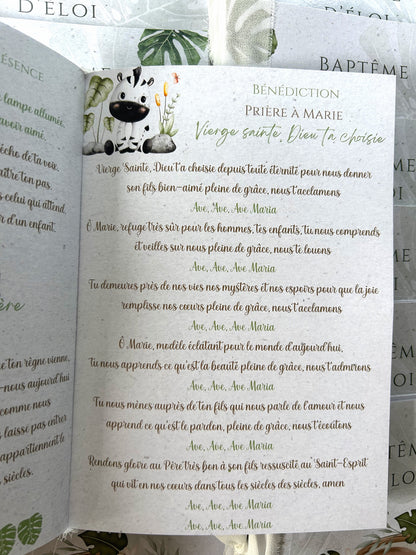 D'ÉLOI
D'ÉLOI
BAPTÊME
ÉSENCE
lampe allumée,
avoir aimé.
écho de ta voix,
aître ton pas,
s celui qui attend,
r d'un enfant.
ère
ton règne vienne,
nous aujourd'hui
comme nous
s laisse pas entrer
appartiennent le
siècles.
Bénédiction
Prière à Marie
Vierge sainte, Dieu t'a choisie
Vierge Sainte, Dieu t'a choisie depuis toute éternité pour nous donner
son fils bien-aimé pleine de grâce, nous t'acclamons
Ave, Ave, Ave Maria
Ô Marie, refuge très sûr pour les hommes, tes enfants, tu nous comprends
et veilles sur nous pleine de grâce, nous te louons
Ave, Ave, Ave Maria
Tu demeures près de nos vies nos mystères et nos espoirs pour que la joie
remplisse nos cœurs pleine de grâce, nous t'acclamons
Ave, Ave, Ave Maria
Ô Marie, modèle éclatant pour le monde d'aujourd'hui,
Tu nous apprends ce qu'est la beauté pleine de grâce, nous t'admirons
Ave, Ave, Ave Maria
Tu nous mènes auprès de ton fils qui nous parle de l'amour et nous
apprend ce qu'est le pardon, pleine de grâce, nous t'écoutons
Ave, Ave, Ave Maria
Rendons gloire au Père très bon à son fils ressuscité au Saint-Esprit
qui vit en nos cœurs dans tous les siècles des siècles, amen
Ave, Ave, Ave Maria
Ave, Ave, Ave Maria